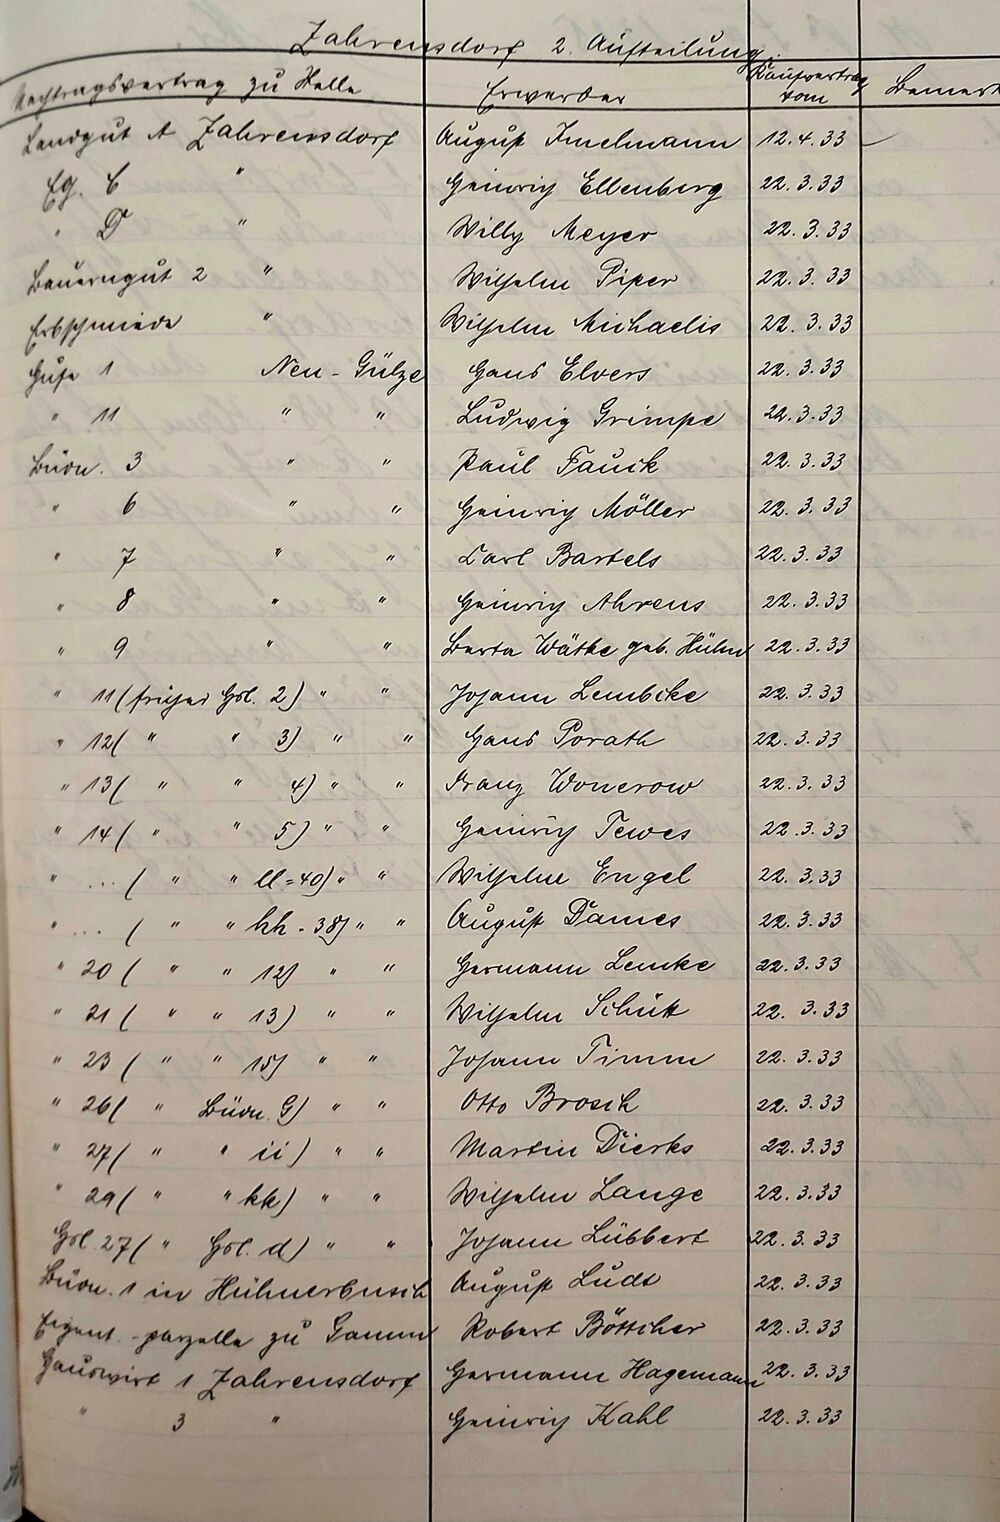 Zahrensdorf 2. Aufteilung.
Nachtragsvertrag zu Stelle Erwerber Kaufvertrag vom Bemerk
Landgut A Zahrensdorf August Imelmann 12.4.33 –
Eg. C " Heinrich Ellenberg 22.3.33
" D " Willy Meyer 22.3.33
Bauerngut 2 " Wilhelm Piper 22.3.33
Erbschmiede " Wilhelm Michaelis 22.3.33
Hufe 1 Neu-Gülze Hans Elvers 22.3.33
" 11 " " Ludwig Grimpe 22.3.33
Büdn. 3 " " Paul Fauck 22.3.33
" 6 " " Heinrich Möller 22.3.33
" 7 " " Carl Bartels 22.3.33
" 8 " " Heinrich Ahrens 22.3.33
" 9 " " Berta Wätke geb. Hühn 22.3.33
" 11 (früher Hsl. 2) " " Johann Lembcke 22.3.33
" 12 ( " " 3) " " Hans Porath 22.3.33
" 13 ( " " 4) " " Franz Wonerow 22.3.33
" 14 ( " " 5) " " Heinrich Tewes 22.3.33
" ... ( " " ll = 40) " " Wilhelm Engel 22.3.33
" ... ( " " hh - 38) " " August Dames 22.3.33
" 20 ( " " 12) " " Hermann Lemke 22.3.33
" 21 ( " " 13) " " Wilhelm Schütt 22.3.33
" 23 ( " " 15) " " Johann Timm 22.3.33
" 26 ( " Büdn. G) " " Otto Brosch 22.3.33
" 27 ( " " ii) " " Martin Dierks 22.3.33
" 29 ( " " kk) " " Wilhelm Lange 22.3.33
Hsl. 27 ( " Hsl. d) " " Johann Lübbert 22.3.33
Büdn. 1 in Hühnerbusch August Ludt 22.3.33
Eigent.-parzelle zu Gamm Robert Böttcher 22.3.33
Hauswirt 1 Zahrensdorf Hermann Hagemann 22.3.33
" 3 " Heinrich Kahl 22.3.33